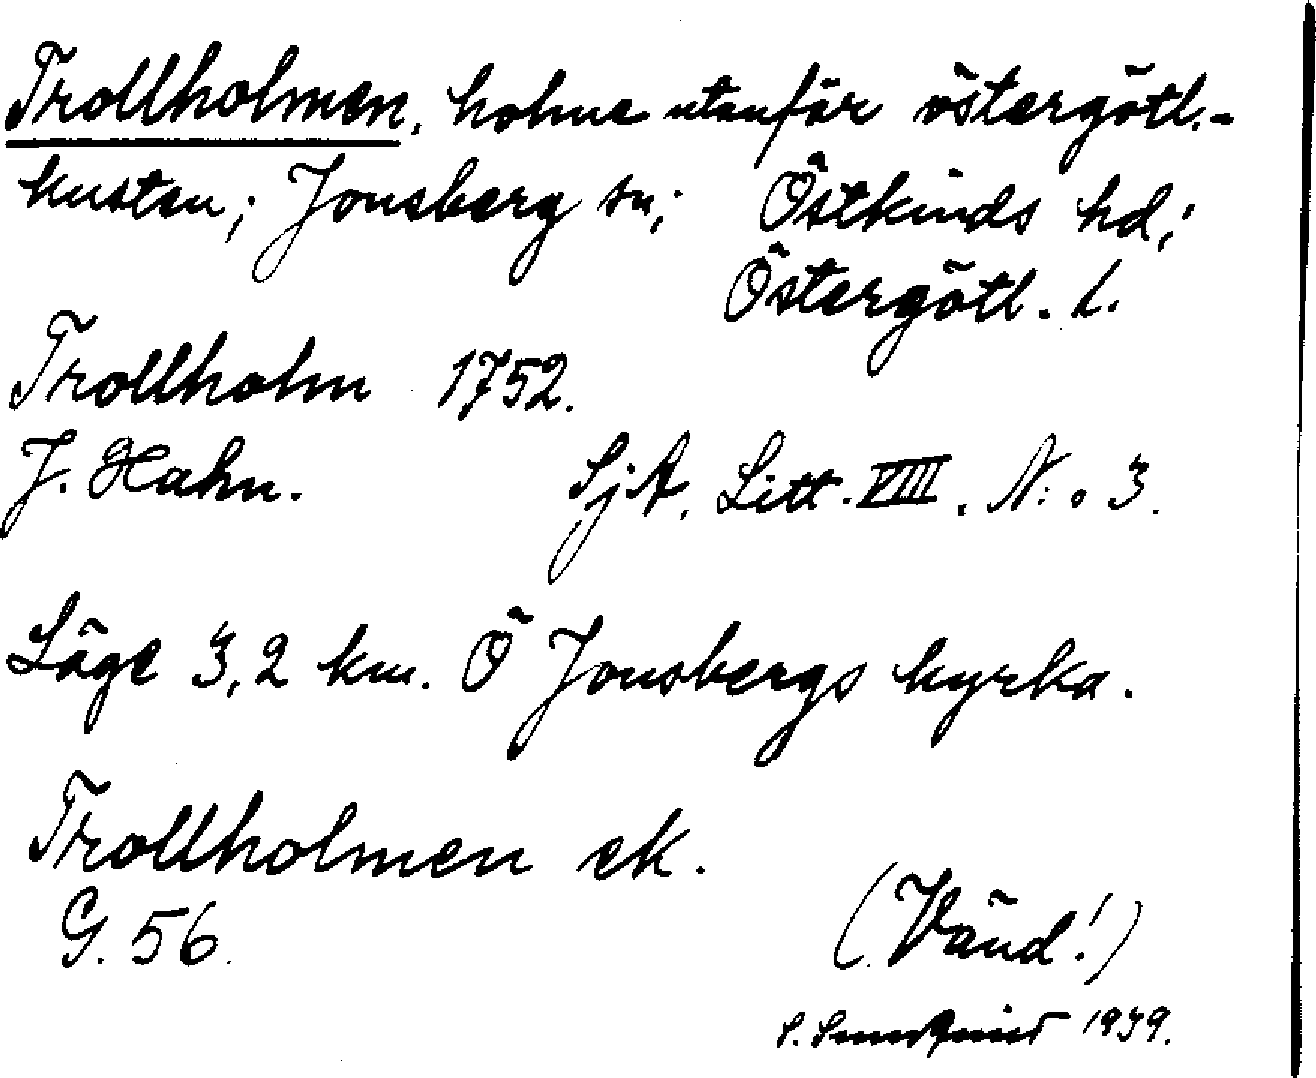 Trollholmen, holme utanför östergötl.-
kusten; Jonsberg sn; Östkinds hd;
Östergötl. l.
Trollholm 1752.
J. Hahn. SjA, Litt. VIII. N:o 3.
Läge 3,2 km. Ö Jonsbergs kyrka.
Trollholmen ek.
G. 56.
(Vänd!)
S. 1939.